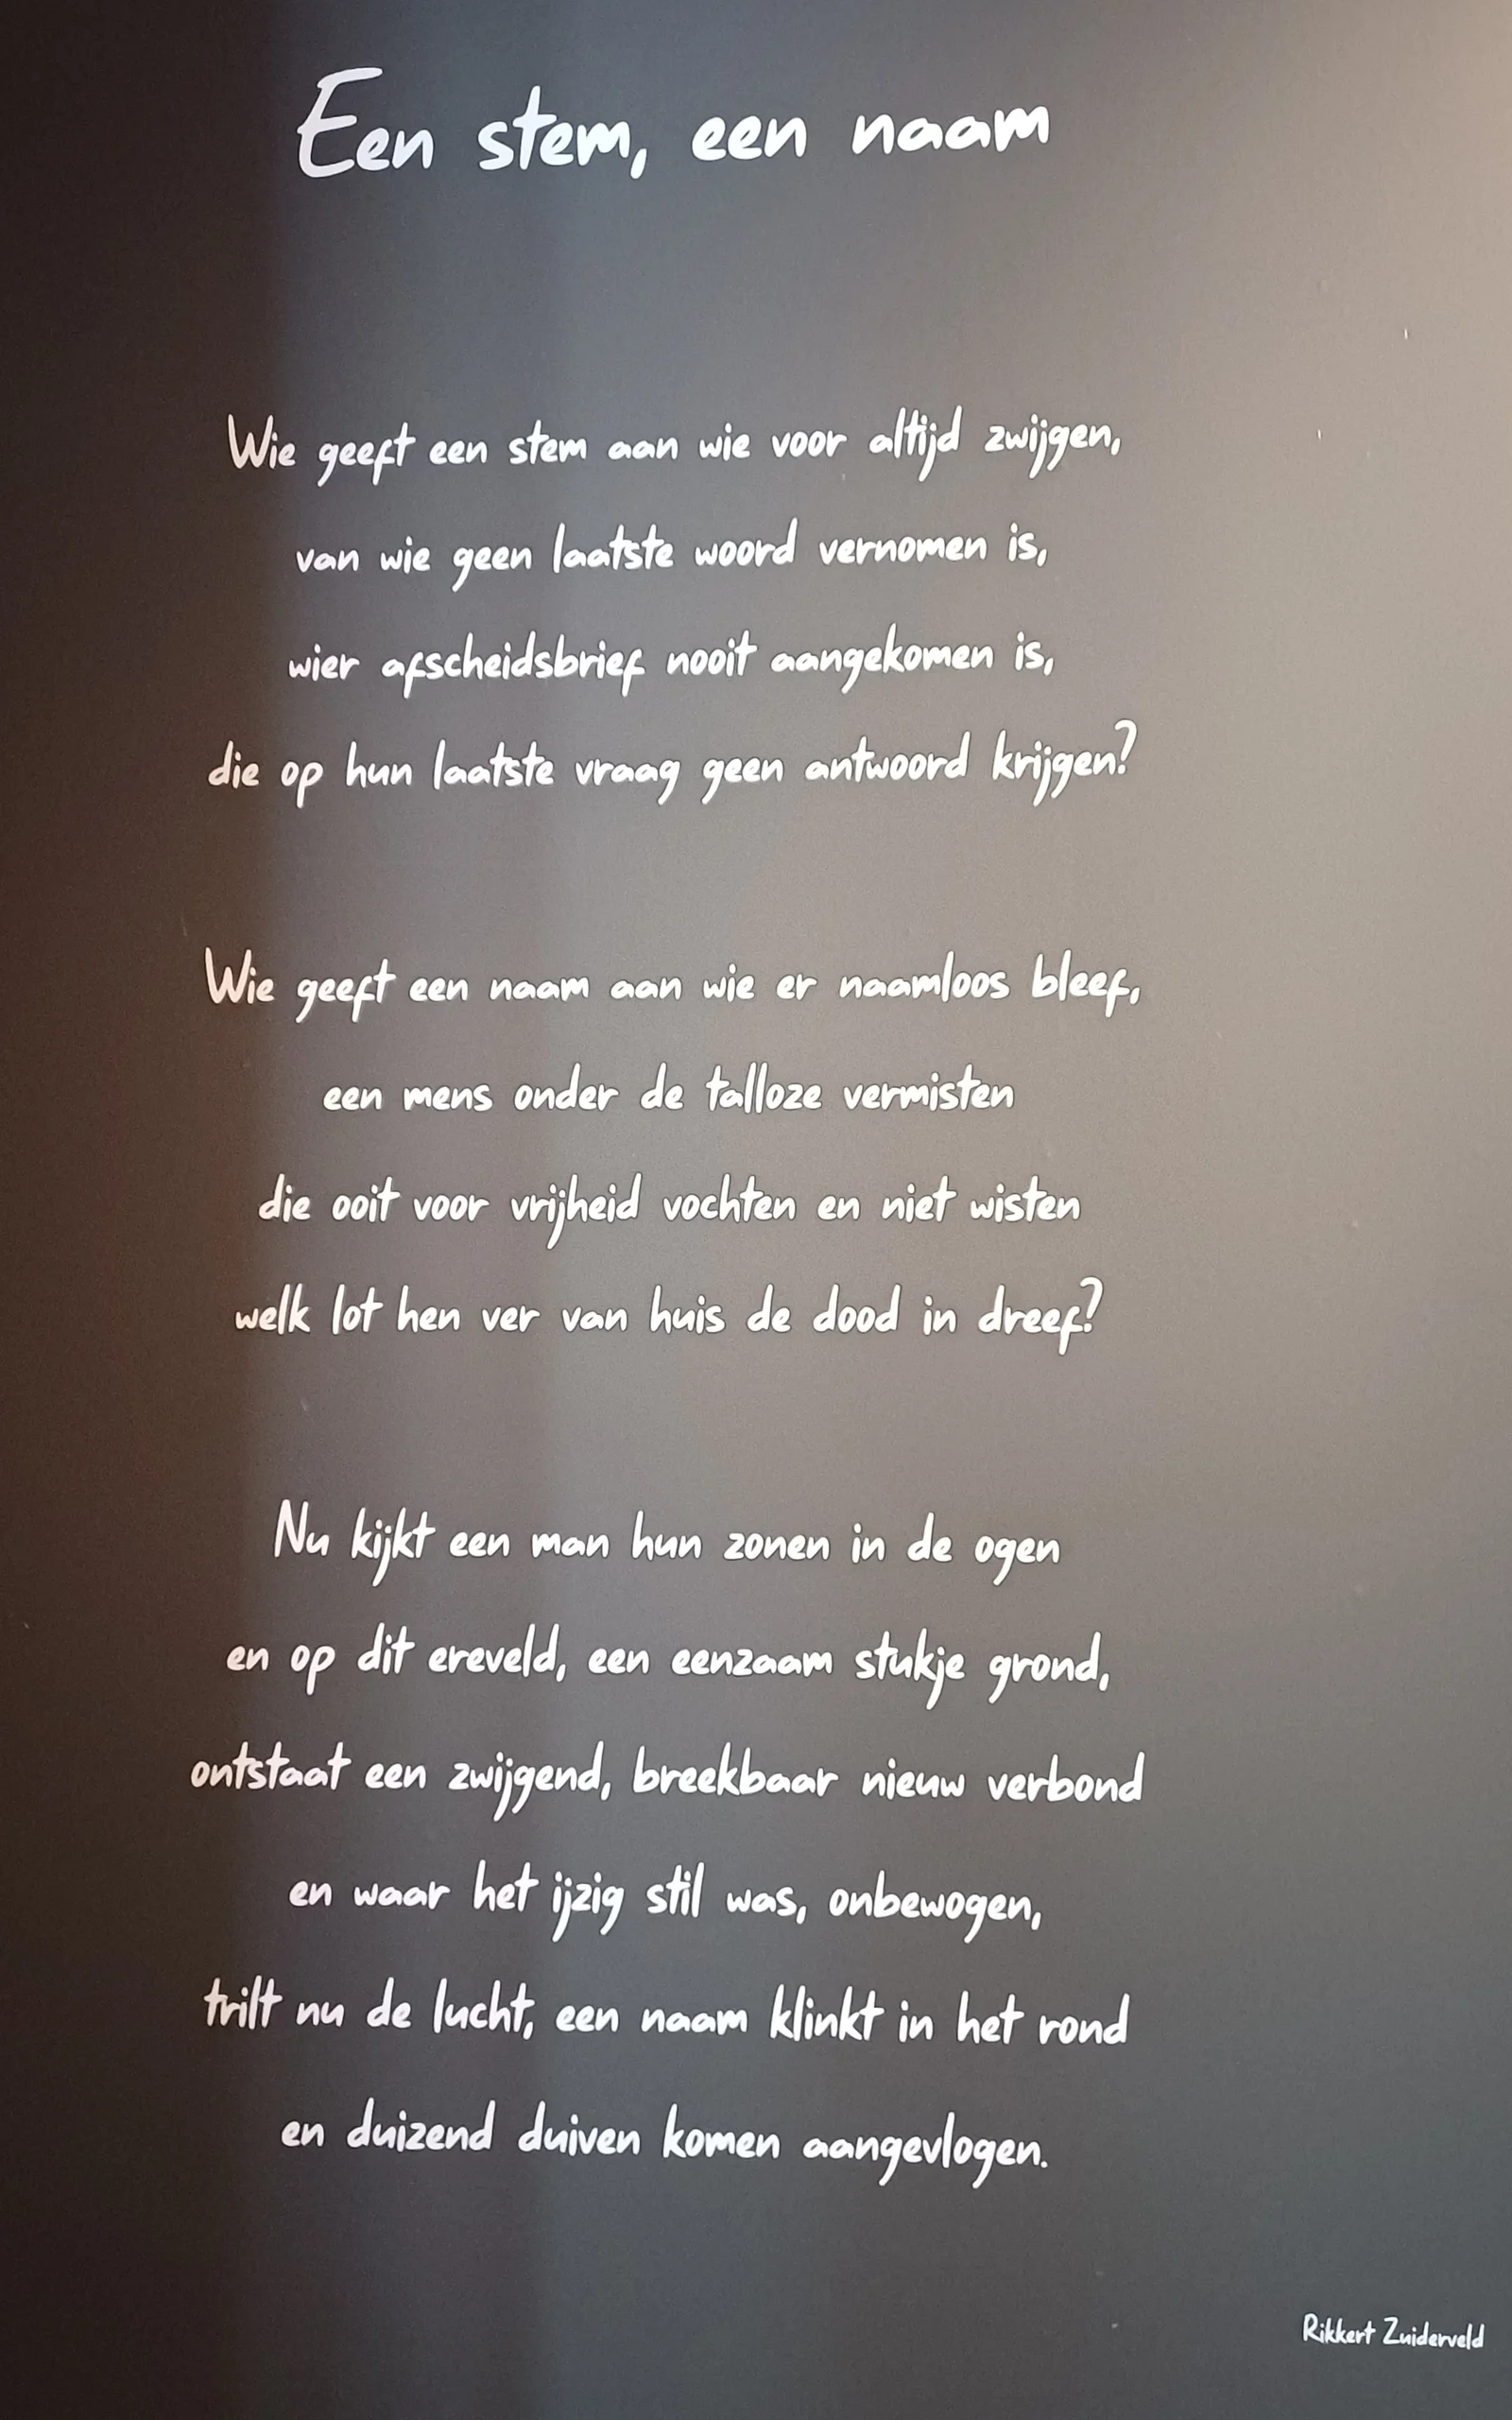 Een stem, een naam
Wie geeft een stem aan wie voor altijd zwijgen,
van wie geen laatste woord vernomen is,
wier afscheidsbrief nooit aangekomen is,
die op hun laatste vraag geen antwoord krijgen?
Wie geeft een naam aan wie er naamloos bleef,
een mens onder de talloze vermisten
die ooit voor vrijheid vochten en niet wisten
welk lot hen ver van huis de dood in dreef?
Nu kijkt een man hun zonen in de ogen
en op dit ereveld, een eenzaam stukje grond,
ontstaat een zwijgend, breekbaar nieuw verbond
en waar het ijzig stil was, onbewogen,
trilt nu de lucht, een naam klinkt in het rond
en duizend duiven komen aangevlogen.
Rikkert Zuiderveld